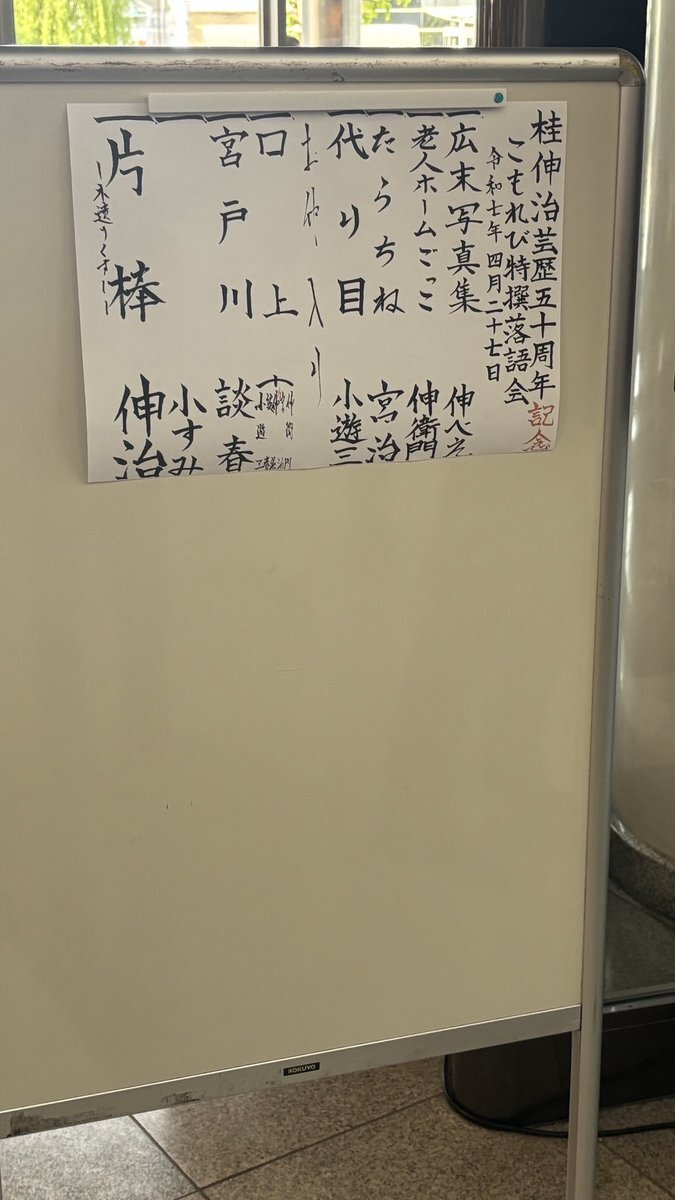 桂伸治芸歴五十周年記念
こもれび特撰落語会
令和七年四月二十七日
一広末写真集 伸べえ
一老人ホームごっこ 伸衛門
一たらちね 宮治
一代り目 小遊三
お仲入り
一口上
一宮戸川 談春
一 小すみ
一片棒 伸治
KOKUYO